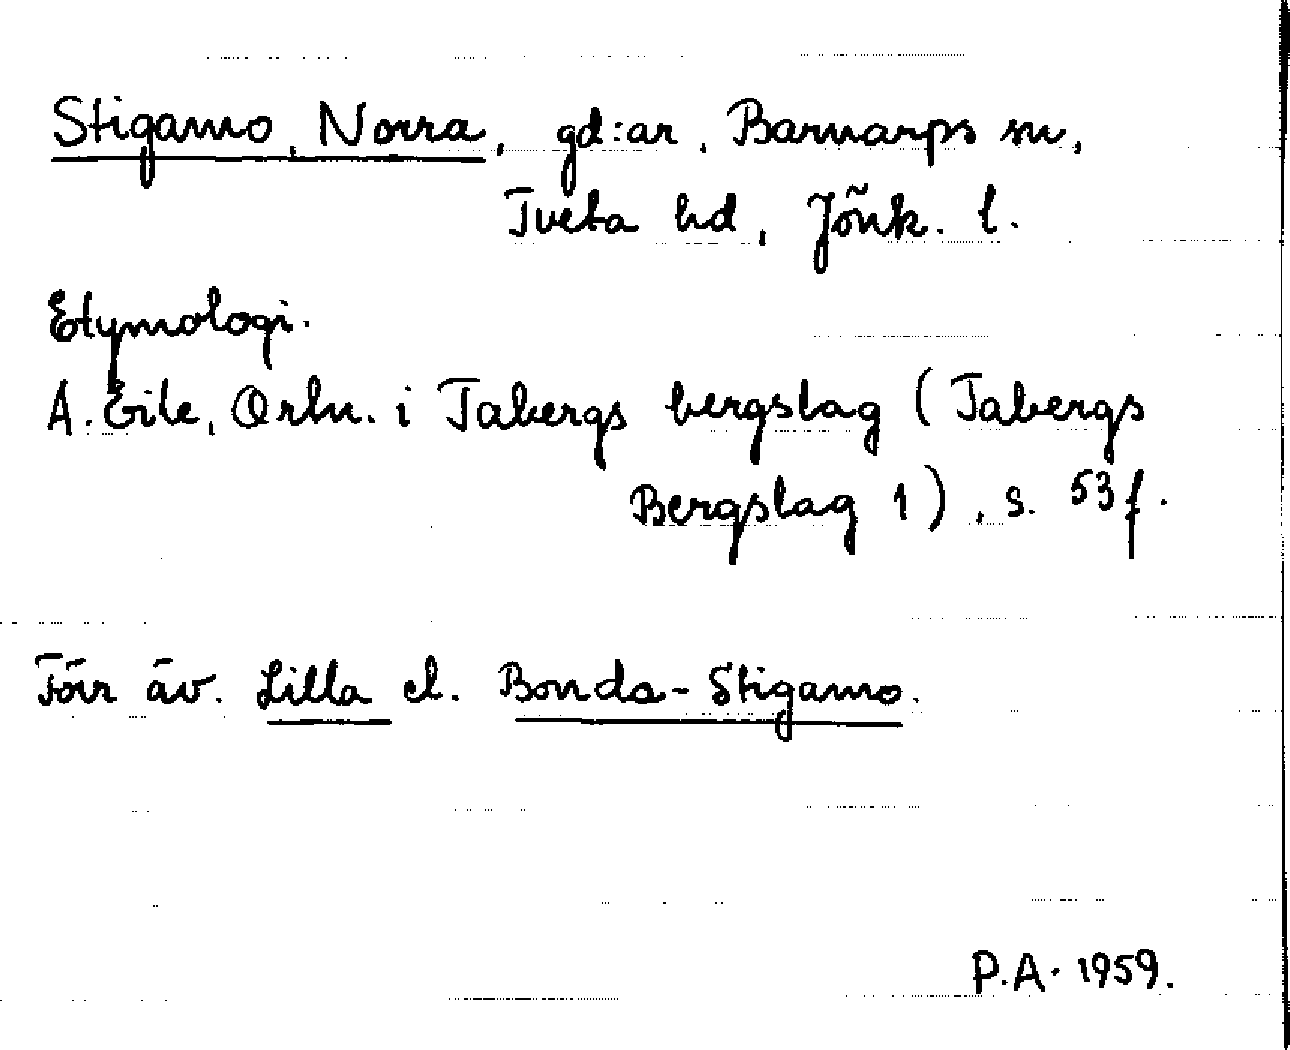 Stigamo, Norra, gd:ar, Barnarps sn,
Tveta hd, Jönk. l.
Etymologi.
A. Eile, Ortn. i Tabergs bergslag (Tabergs
Bergslag 1), s. 53 f.
Förr äv. Lilla el. Bonda-Stigamo.
P.A. 1959.